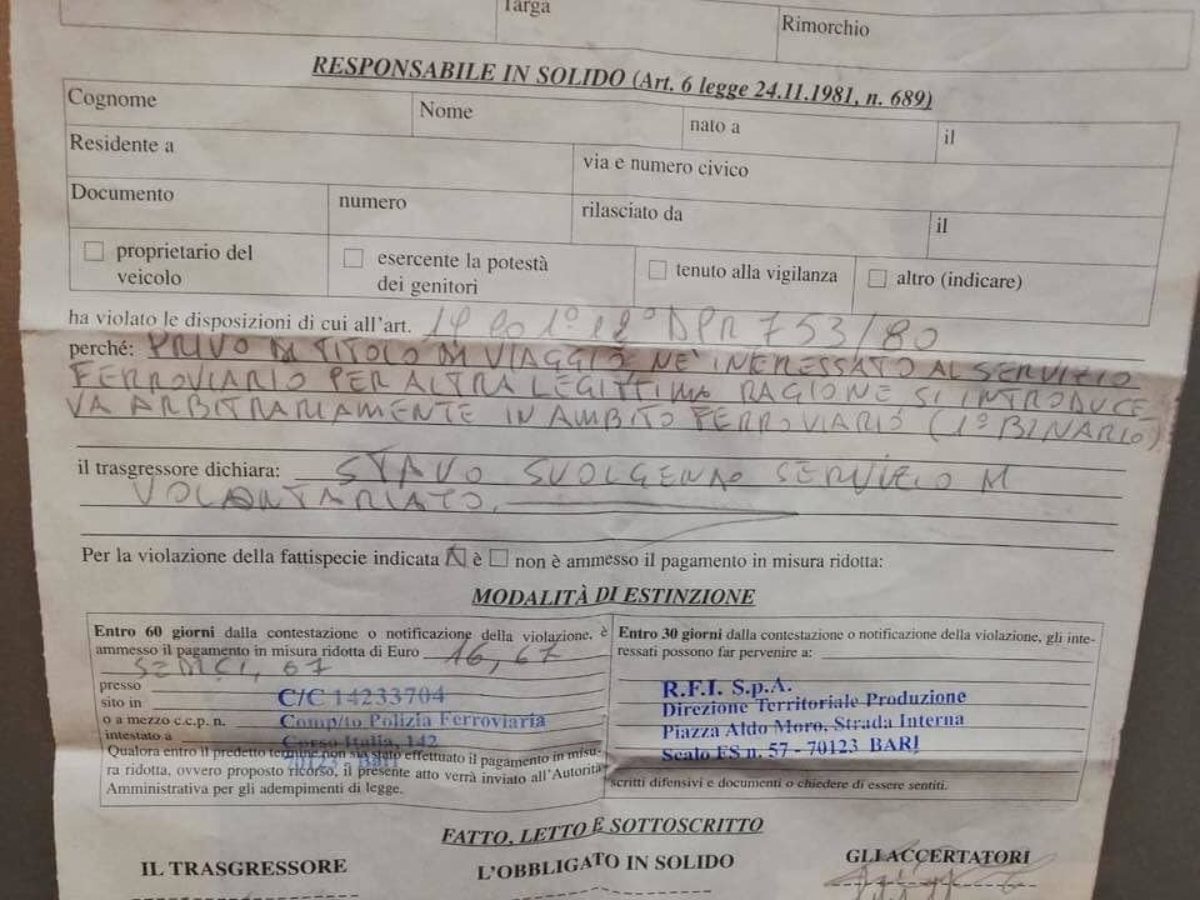 Targa
Rimorchio
RESPONSABILE IN SOLIDO (Art. 6 legge 24.11.1981, n. 689)
Cognome
Nome
nato a
il
Residente a
via e numero civico
Documento
numero
rilasciato da
il
☐ proprietario del
veicolo
☐ esercente la potestà
dei genitori
☐ tenuto alla vigilanza
☐ altro (indicare)
ha violato le disposizioni di cui all'art. 19 co 1° e 2° DPR 753/80
perché: PRIVO DI TITOLO DI VIAGGIO, NE' INERESSATO AL SERVIZIO
FERROVIARIO PER ALTRA LEGITTIMA RAGIONE SI INTRODUCE
VA ARBITRARIAMENTE IN AMBITO FERROVIARIO (1° BINARIO)
il trasgressore dichiara: STAVO SVOLGENDO SERVIZIO DI
VOLONTARIATO.
Per la violazione della fattispecie indicata ☒ è ☐ non è ammesso il pagamento in misura ridotta:
MODALITÀ DI ESTINZIONE
Entro 60 giorni dalla contestazione o notificazione della violazione, è
ammesso il pagamento in misura ridotta di Euro 16,67
SEDICI, 67
presso
sito in C/C 14233704
o a mezzo c.c.p. n. Comp/to Polizia Ferroviaria
intestato a Corso Italia, 142
70123 - BARI
Qualora entro il predetto termine non sia stato effettuato il pagamento in misu-
ra ridotta, ovvero proposto ricorso, il presente atto verrà inviato all'Autorità
Amministrativa per gli adempimenti di legge.
Entro 30 giorni dalla contestazione o notificazione della violazione, gli inte-
ressati possono far pervenire a:
R.F.I. S.p.A.
Direzione Territoriale Produzione
Piazza Aldo Moro, Strada Interna
Scalo FS n. 57 - 70123 BARI
scritti difensivi e documenti o chiedere di essere sentiti.
FATTO, LETTO E SOTTOSCRITTO
IL TRASGRESSORE
L'OBBLIGATO IN SOLIDO
GLI ACCERTATORI